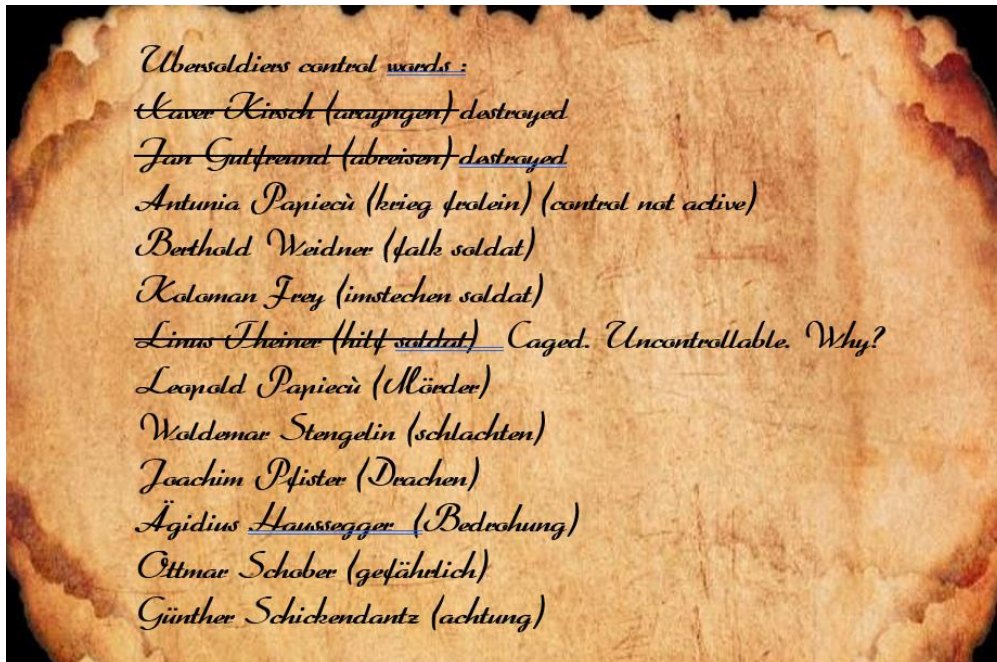 Ubersoldiers control words :
Xaver Kirsch (arayngen) destroyed
Jan Gutfreund (abreisen) destroyed
Antunia Papiecù (krieg frolein) (control not active)
Berthold Weidner (falk soldat)
Koloman Frey (imstechen soldat)
Linus Theiner (hilf soldat) Caged. Uncontrollable. Why?
Leopold Papiecù (Mörder)
Woldemar Stengelin (schlachten)
Joachim Pfister (Drachen)
Ägidius Haussegger (Bedrohung)
Ottmar Schober (gefährlich)
Günther Schickendantz (achtung)